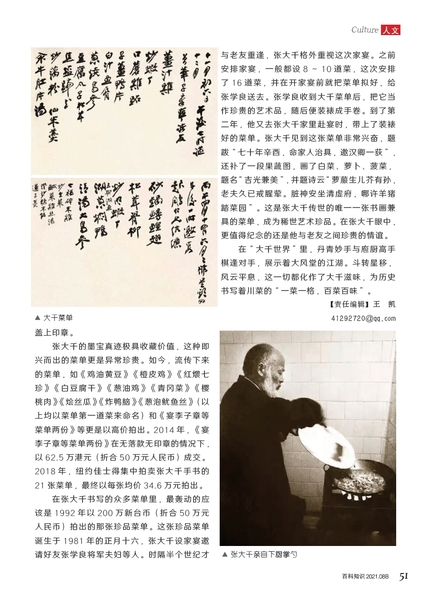 Culture 人文
▲ 大千菜单
盖上印章。
张大千的墨宝真迹极具收藏价值，这种即
兴而出的菜单更是异常珍贵。如今，流传下来
的菜单，如《鸡油黄豆》《橙皮鸡》《红煨七
珍》《白豆腐干》《葱油鸡》《青冈菜》《樱
桃肉》《烩丝瓜》《炸鸭脑》《葱泡鱿鱼丝》（以
上均以菜单第一道菜来命名）和《宴李子章等
菜单两份》等更是以高价拍出。2014 年，《宴
李子章等菜单两份》在无落款无印章的情况下，
以 62.5 万港元（折合 50 万元人民币）成交。
2018 年，纽约佳士得集中拍卖张大千手书的
21 张菜单，最终以每张均价 34.6 万元拍出。
在张大千书写的众多菜单里，最轰动的应
该是 1992 年以 200 万新台币（折合 50 万元
人民币）拍出的那张珍品菜单。这张珍品菜单
诞生于 1981 年的正月十六，张大千设家宴邀
请好友张学良将军夫妇等人。时隔半个世纪才
与老友重逢，张大千格外重视这次家宴。之前
安排家宴，一般都设 8 ~ 10 道菜，这次安排
了 16 道菜，并在开家宴前就把菜单拟好，给
张学良送去。张学良收到大千菜单后，把它当
作珍贵的艺术品，随后便装裱成手卷。到了第
二年，他又去张大千家里赴宴时，带上了装裱
好的菜单。张大千见到这张菜单非常兴奋，题
跋“七十年辛酉，命家人治具，邀汉卿一荻”，
还补了一段果蔬图，画了白菜、萝卜、菠菜，
题名“吉光兼美”，并题诗云“萝菔生儿芥有孙，
老夫久已戒腥荤。脏神安坐清虚府，哪许羊猪
踏菜园”。这是张大千传世的唯一一张书画兼
具的菜单，成为稀世艺术珍品。在张大千眼中，
更值得纪念的还是他与老友之间珍贵的情谊。
在“大千世界”里，丹青妙手与庖厨高手
棋逢对手，展示着大风堂的江湖。斗转星移，
风云平息，这一切都化作了大千滋味，为历史
书写着川菜的“一菜一格，百菜百味”。
【责任编辑】王　凯
41292720@qq.com
▲ 张大千亲自下厨掌勺
百科知识 2021.08B 51